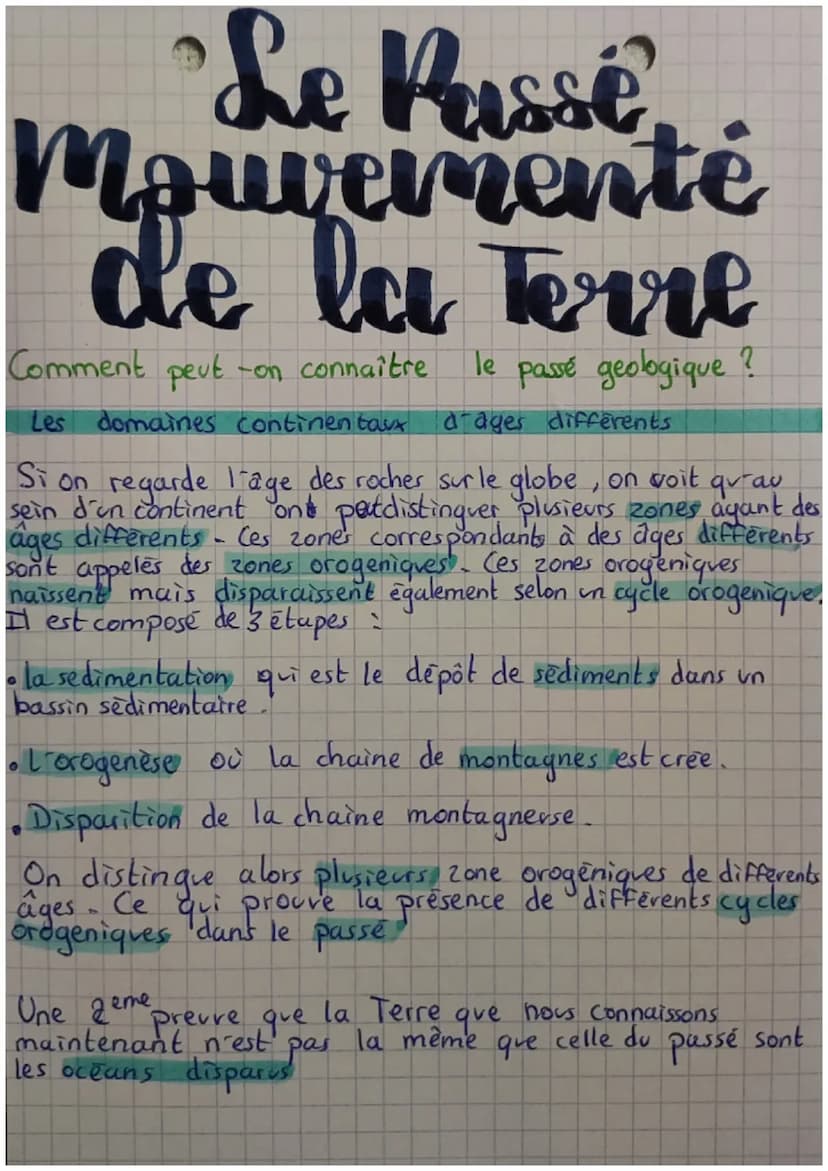 Le Passé
Mouvementé
de la Terre
Comment peut-on connaître le passé geologique ?
Les domaines continentaux d'âges différents
Si on regarde l'âge des roches sur le globe, on voit qu'au
sein d'un continent ont peut distinguer plusieurs zones ayant des
âges différents. Ces zones correspondants à des âges différents
sont appelés des zones orogeniques. Ces zones orogéniques
naissent mais disparaissent également selon un cycle orogenique.
Il est composé de 3 étapes :
• la sedimentation qui est le dépôt de sédiments dans un
bassin sédimentaire.
• L'orogenèse où la chaine de montagnes est crée.
• Disparition de la chaine montagneuse.
On distingue alors plusieurs zone orogéniques de différents
âges. Ce qui prouve la présence de différents cycles
orogeniques dans le passé
Une 2eme preuve que la Terre que nous connaissons
maintenant n'est pas la même que celle du passé sont
les océans disparus